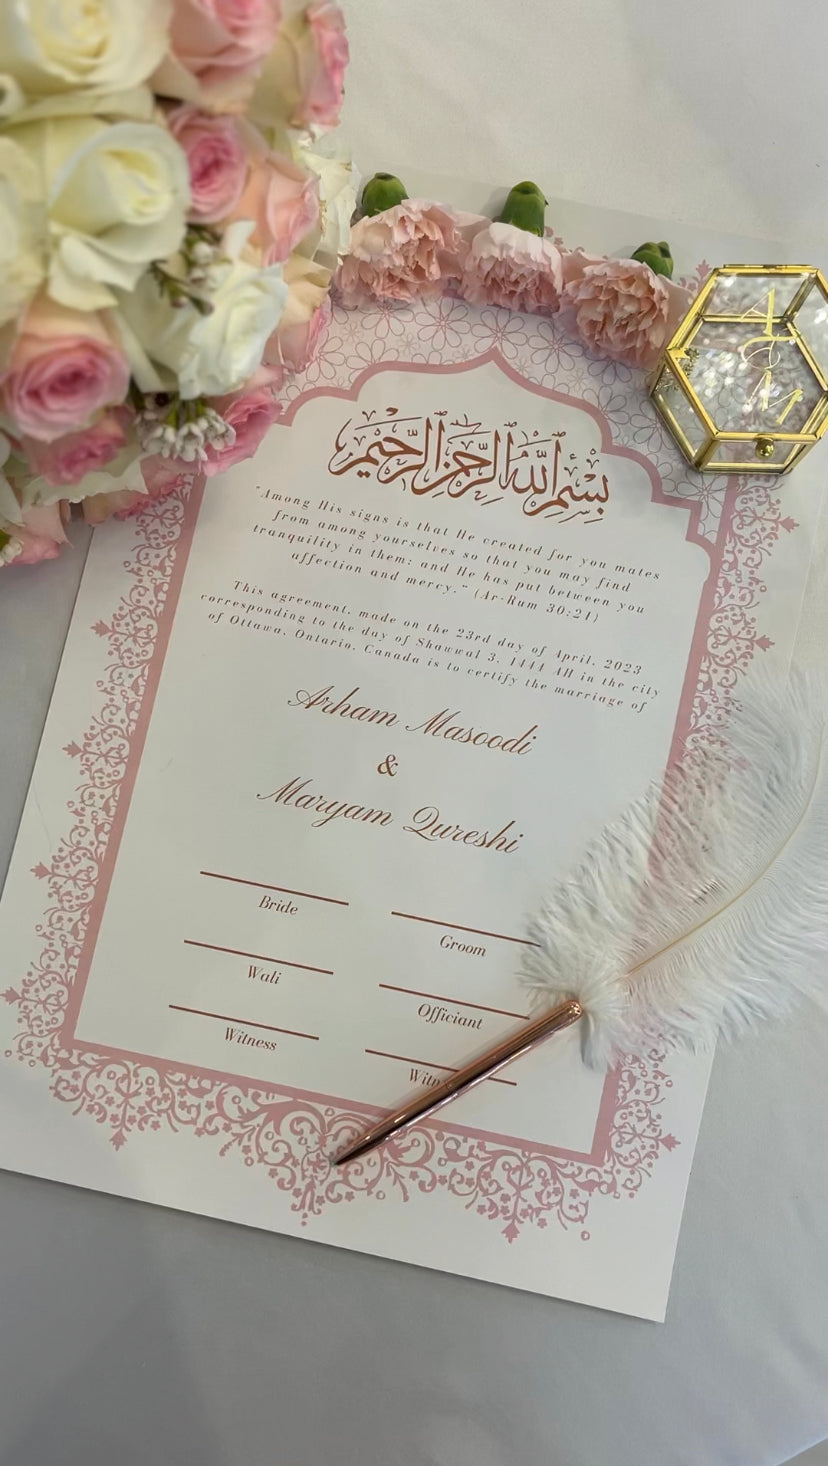 بسم الله الرحمن الرحيم
"Among His signs is that He created for you mates
from among yourselves so that you may find
tranquility in them; and He has put between you
affection and mercy." (Ar-Rum 30:21)
This agreement, made on the 23rd day of April, 2023
corresponding to the day of Shawwal 3, 1444 AH in the city
of Ottawa, Ontario, Canada is to certify the marriage of
Arham Masoodi
&
Maryam Qureshi
Bride
Groom
Wali
Officiant
Witness
A & M